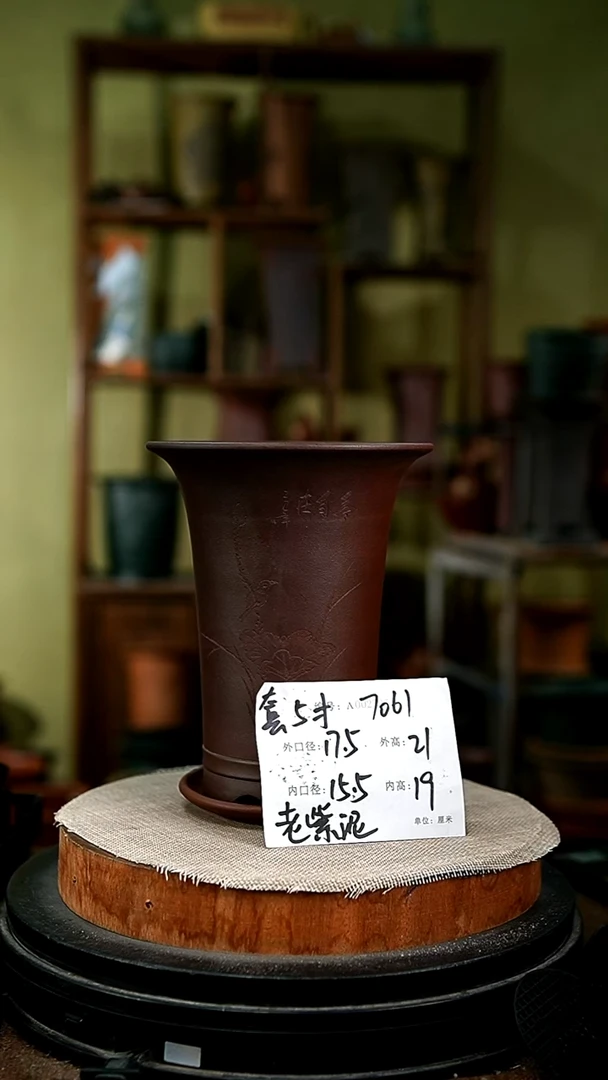 套5寸 7061
外口径:17.5 外高:21
内口径:15.5 内高:19
老紫泥
单位:厘米